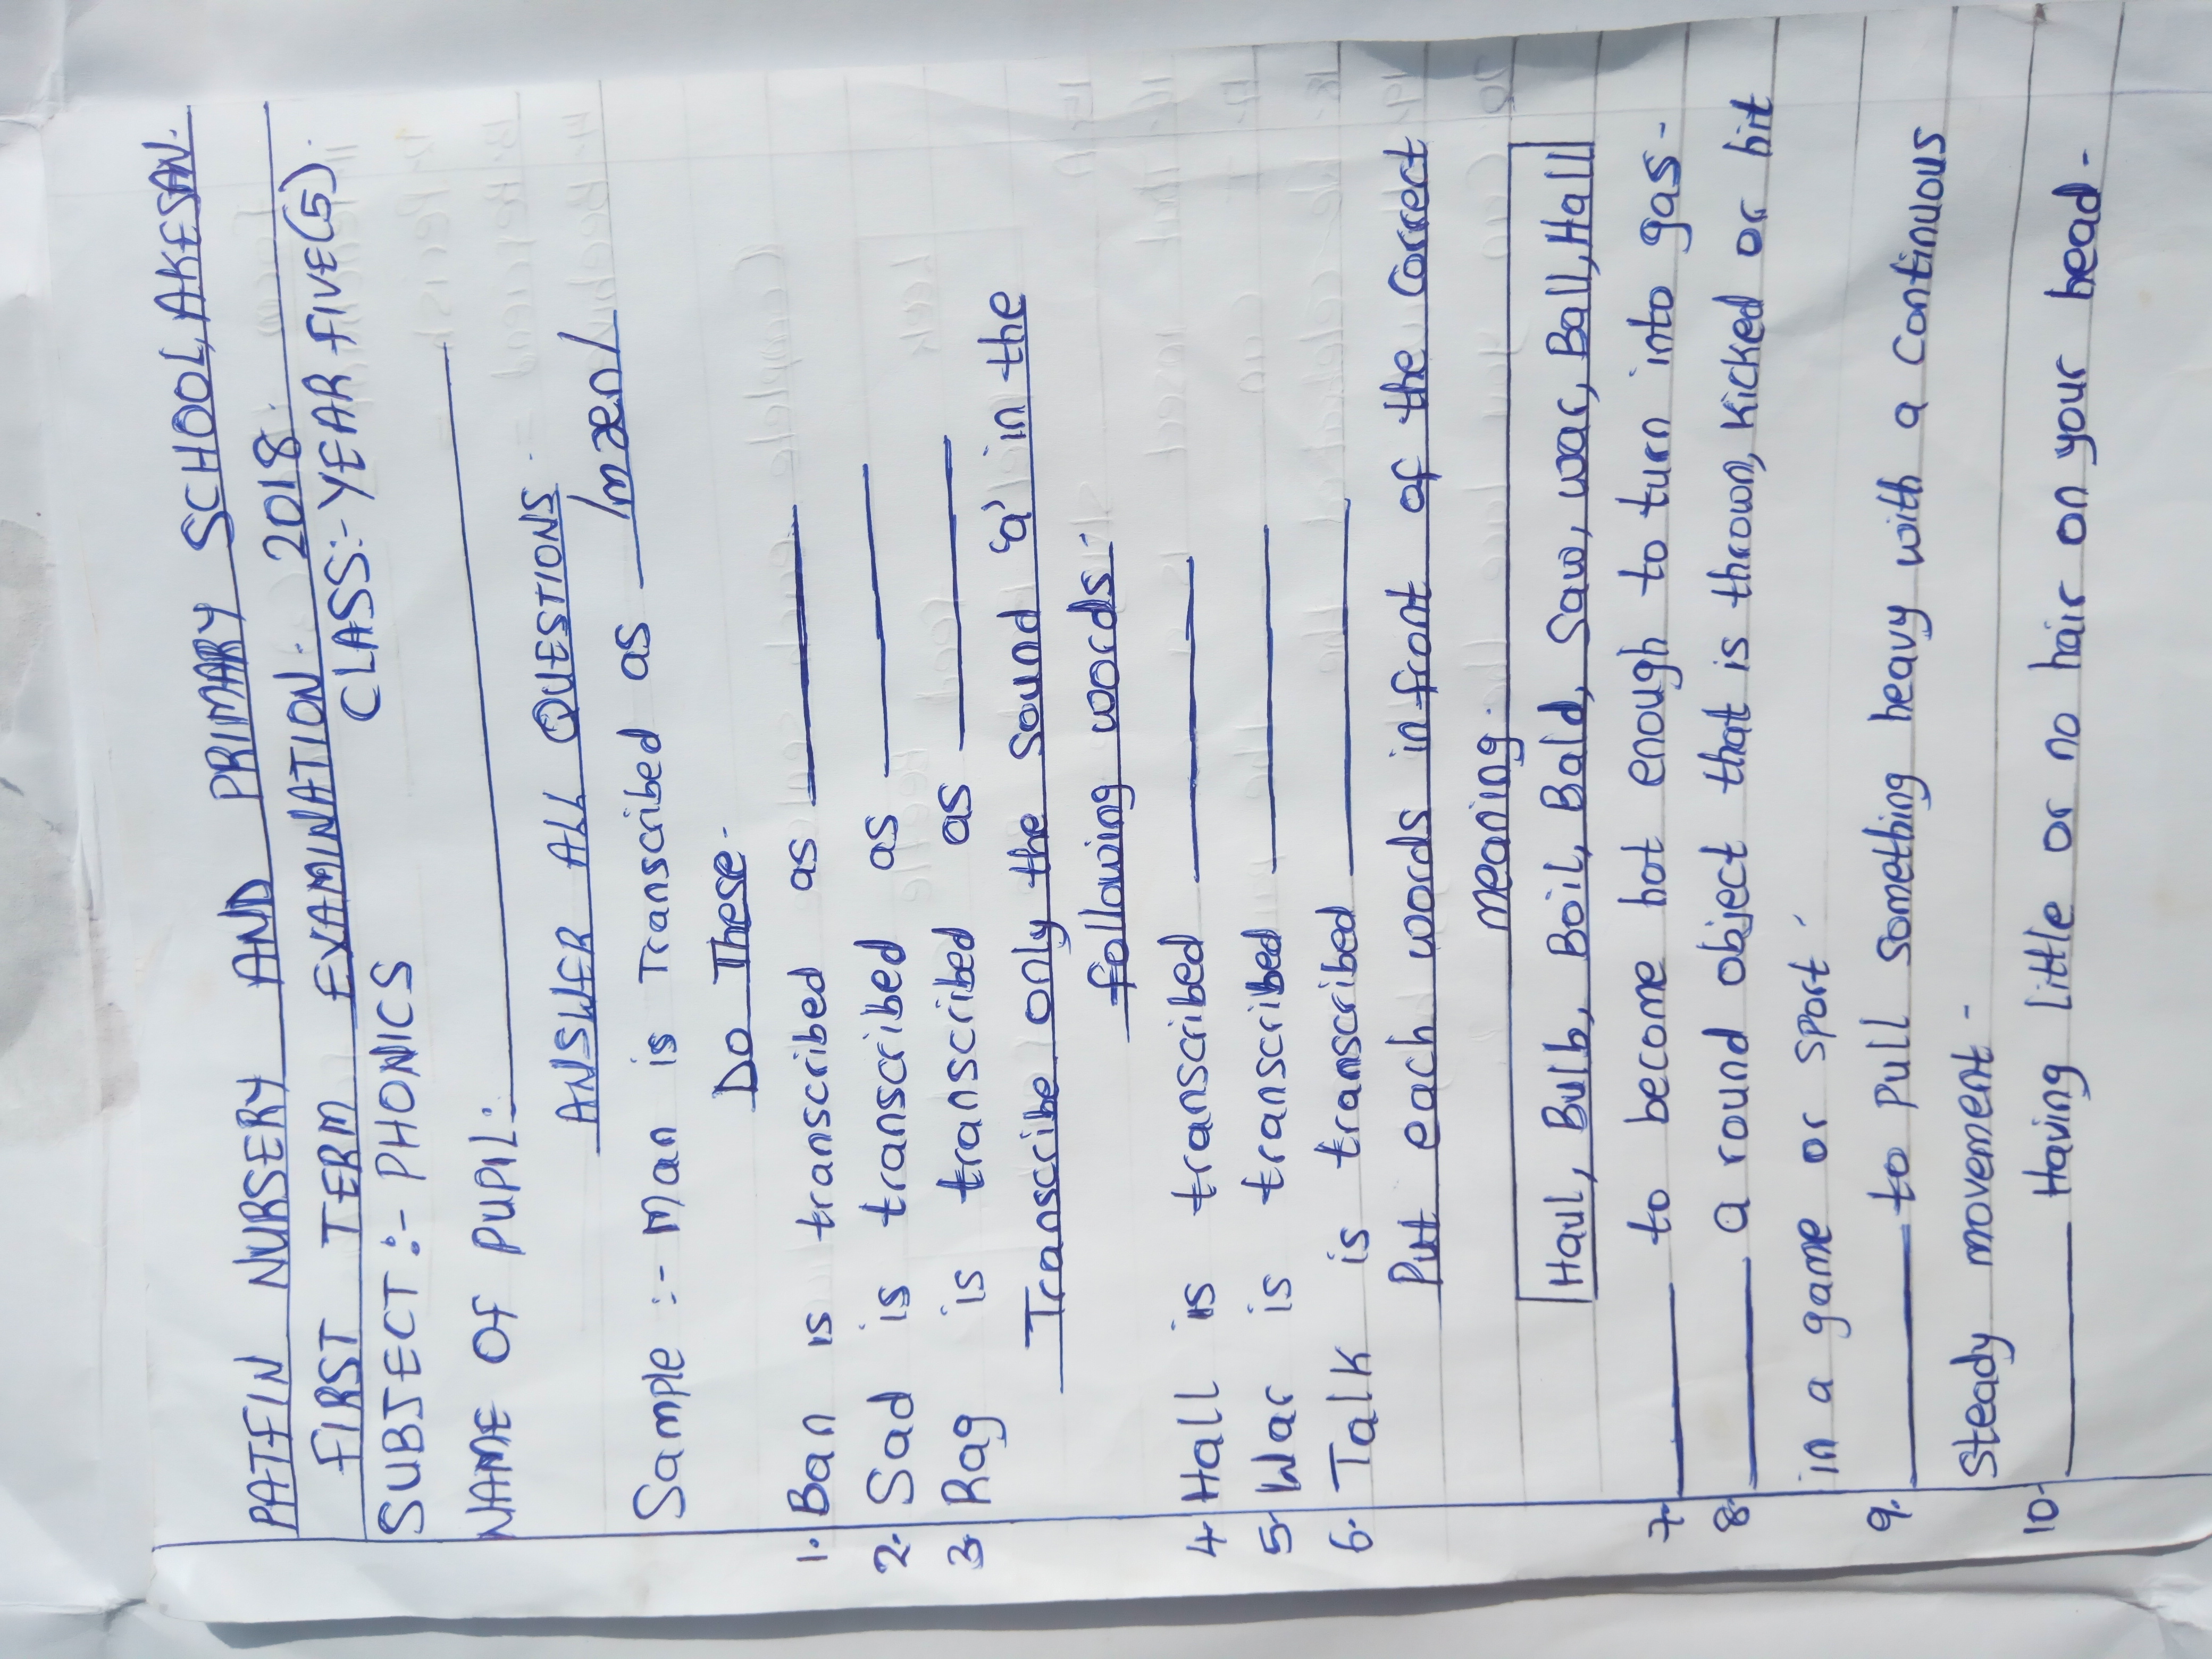 PATFIN NURSERY AND PRIMARY SCHOOL, AKESAN.
FIRST TERM EXAMINATION. 2018.
SUBJECT :- PHONICS CLASS:- YEAR FIVE (5).
NAME OF PUPIL: ____________
ANSWER ALL QUESTIONS.
Sample :- Man is Transcribed as /mæn/
Do These.
1. Ban is transcribed as ________
2. Sad is transcribed as ________
3. Rag is transcribed as ________
Transcribe only the sound 'a' in the
following words:-
4. Hall is transcribed ________
5. War is transcribed ________
6. Talk is transcribed ________
Put each words infront of the correct
meaning.
Haul, Bulb, Boil, Bald, Saw, war, Ball, Hall
7. ________ to become hot enough to turn into gas.
8. ________ a round object that is thrown, kicked or hit
in a game or sport.
9. ________ to pull something heavy with a continuous
Steady movement.
10. ________ Having little or no hair on your head.